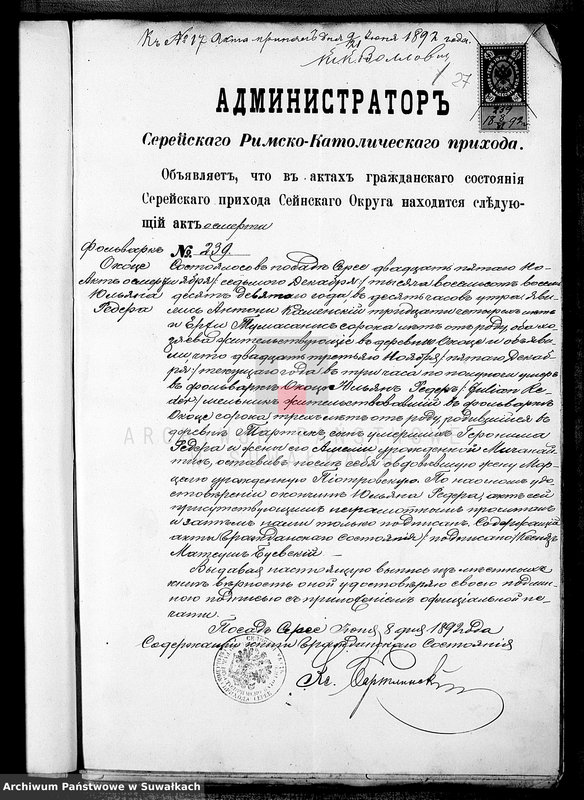 Къ № 17 Акта принятъ дня 9/21 Июня 1892 года.
27
АДМИНИСТРАТОРЪ
Серейскаго Римско-Католическаго прихода.
Объявляетъ, что въ актахъ гражданскаго состоянія
Серейскаго прихода Сейнскаго Округа находится слѣдую-
щій актъ о смерти
Фольваркъ № 239
Окоце Состоялось въ посадѣ Серее двадцать пятаго Но-
Актъ смерти ября / седьмого Декабря / тысяча восемьсотъ восемь
Юльяна десятъ девятаго года въ десять часовъ утра яви
Редера лись Антони Каменскій тридцати четырехъ лѣтъ
и Ерги Тумасанисъ сорока лѣтъ отъ роду, оба хо-
зяева жительствующіе въ деревни Окоце и объяви
ли, что двадцать третьяго Ноября / пятаго Декаб
ря / текущаго года въ три часа по полудни умеръ
въ фольваркѣ Окоце Юльянъ Редеръ / Julian Re-
der / мельникъ жительствовавшій въ фольваркѣ
Окоце сорока трехъ лѣтъ отъ роду, родившійся въ
деревнѣ сынъ умершихъ Геронима
Редера и жены его Амеліи урожденной
оставивъ послѣ себя овдовѣвшую жену Мар-
целю урожденную Піотровскую. По наочномъ удо-
стовѣреніи о кончинѣ Юльяна Редера, актъ сей
присутствующимъ неграмотнымъ прочитанъ
и затѣмъ нами только подписанъ. Содержащій
акты Гражданскаго Состоянія / подписано / Ксендзъ
Матеушъ
Выдавая настоящую выпись изъ мѣстныхъ
книгъ вѣрность оной удостовѣряю своею подлин
ною подписью съ приложеніемъ официальной пе-
чати.
Посадъ Серее Июня 8 дня 1892 года
Содержащій книги Гражданскаго Состоянія
Кс.
ARCHIWUM PAŃSTWOWE
Archiwum Państwowe w Suwałkach